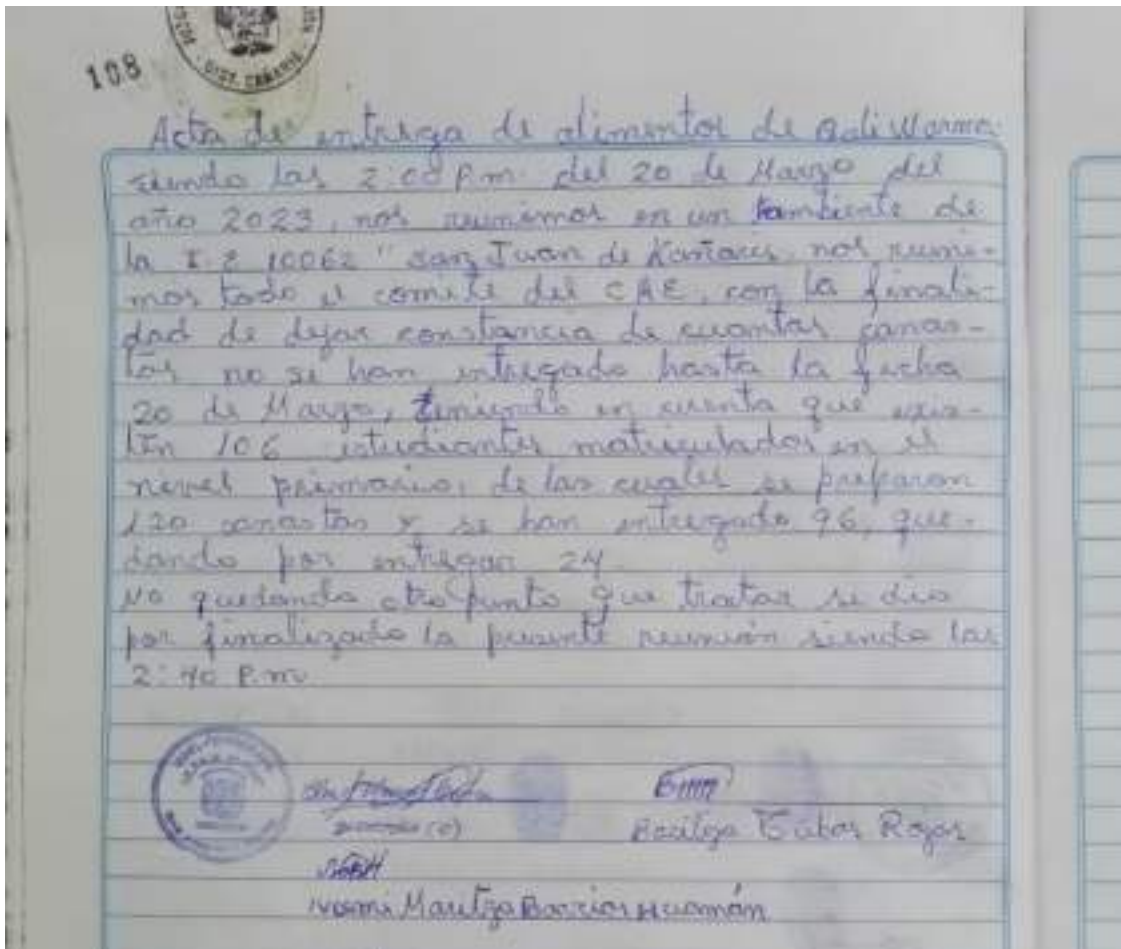 108
DIST. CAÑARIS
Acta de entrega de alimentos de Qali Warma
siendo las 2:00 P.m. del 20 de Marzo del
año 2023, nos reunimos en un ambiente de
la I.E 10062 " San Juan de Kañaris, nos reuni-
mos todo el comité del CAE, con la finali-
dad de dejar constancia de cuantas canas-
tas no se han entregado hasta la fecha
20 de Marzo, teniendo en cuenta que exis-
ten 106 estudiantes matriculados en el
nivel primario, de las cuales se preparon
120 canastas y se han entregado 96, que-
dando por entregar 24.
No quedando otro punto que tratar se dio
por finalizado la presente reunión siendo las
2:40 P.m
Rojas
Noemi Maritza Barrios Huamán